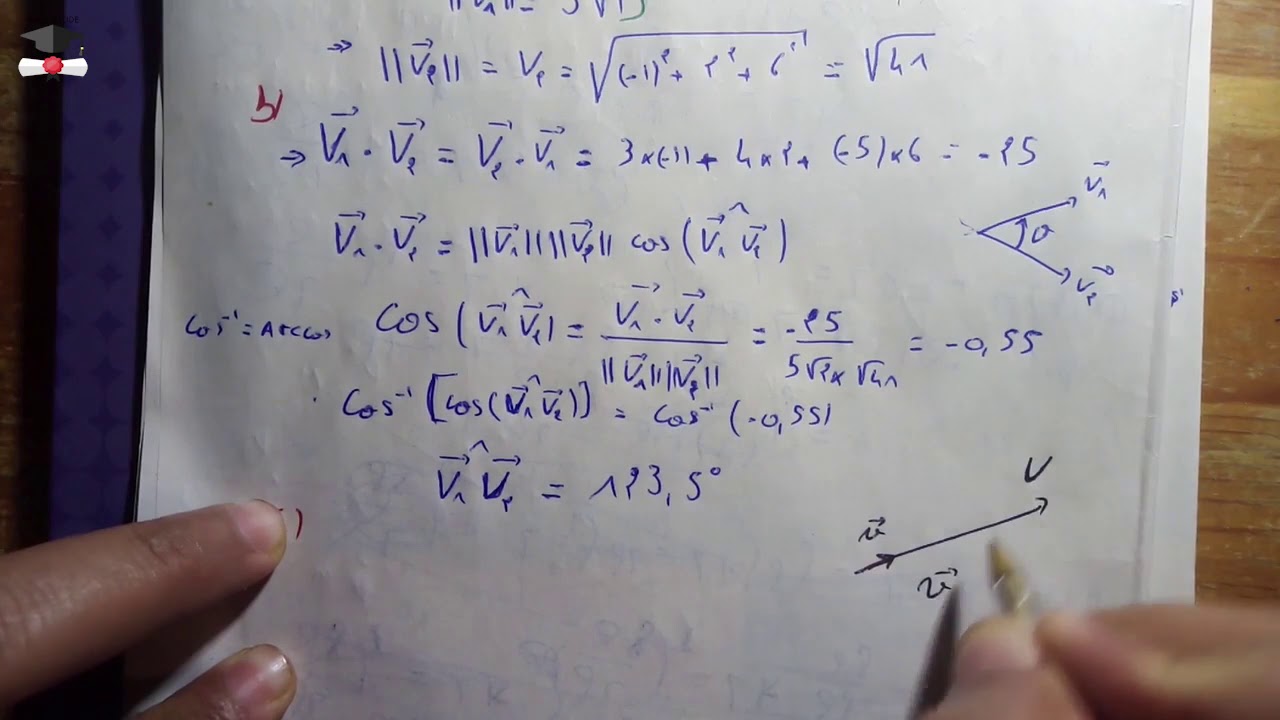 ⇒ ||V⃗₂|| = V₂ = √((-1)² + 2² + 6²) = √41
b)
⇒ V⃗₁ · V⃗₂ = V⃗₂ · V⃗₁ = 3×(-1) + 4×2 + (-5)×6 = -25
V⃗₁ · V⃗₂ = ||V⃗₁|| ||V⃗₂|| cos(V⃗₁^V⃗₂)
V⃗₁
θ
V⃗₂
cos⁻¹ = Arccos
Cos(V⃗₁^V⃗₂) = V⃗₁ · V⃗₂ / ||V⃗₁|| ||V⃗₂|| = -25 / 5√2 × √41 = -0,55
Cos⁻¹[cos(V⃗₁^V⃗₂)] = cos⁻¹(-0,55)
V⃗₁^V⃗₂ = 123,5°
V
u⃗